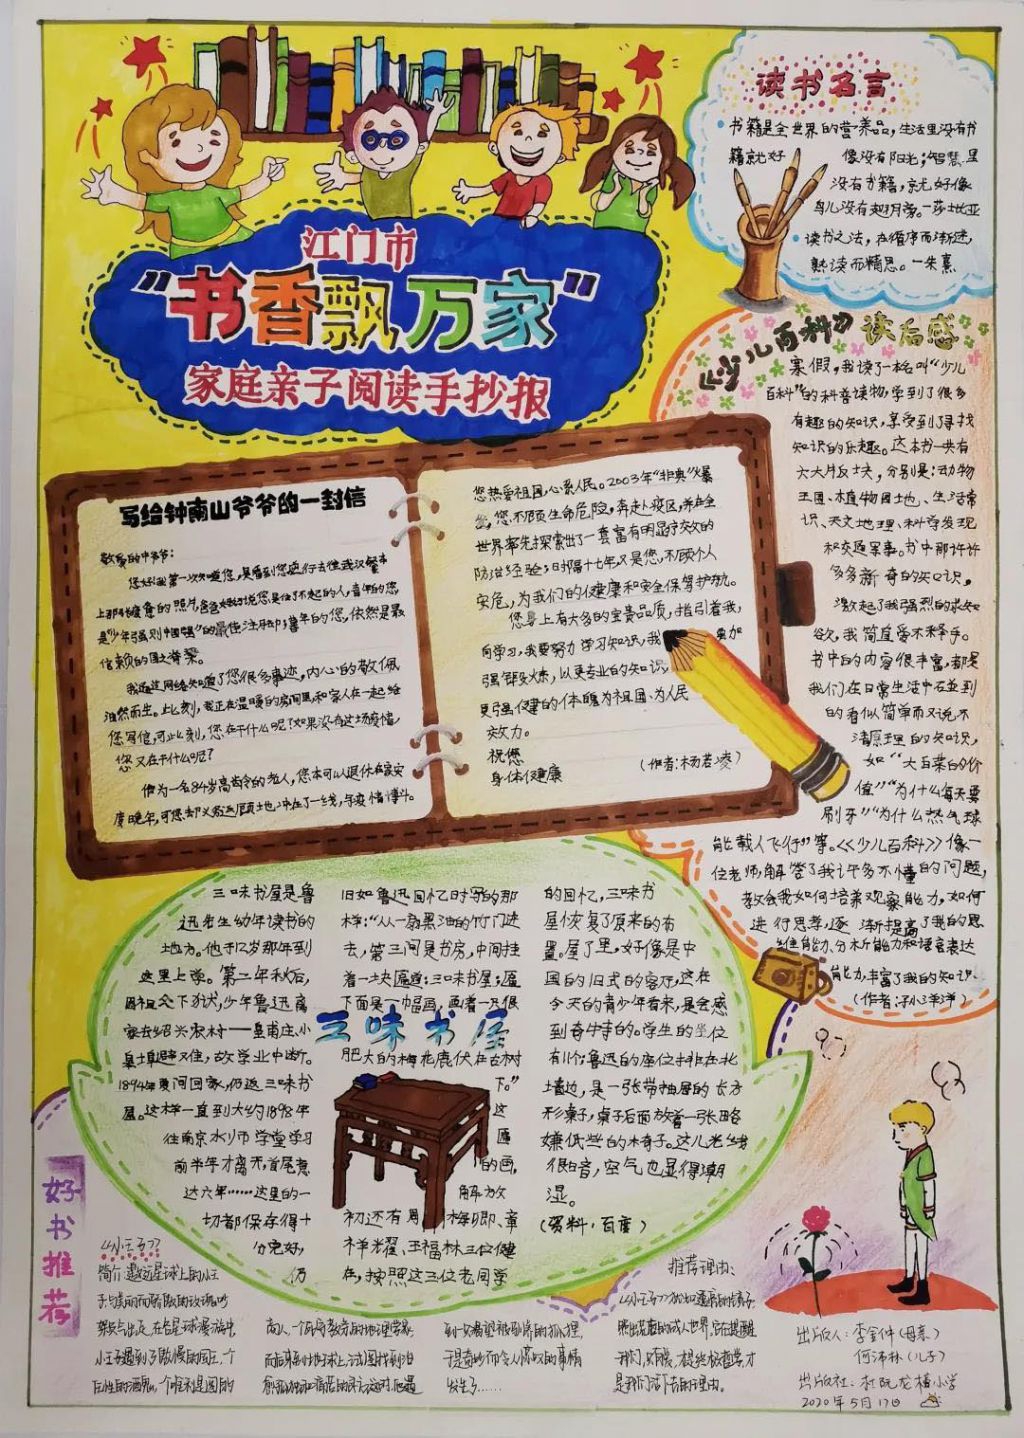 江门市
"书香飘万家"
家庭亲子阅读手抄报
读书名言
书籍是全世界的营养品,生活里没有书
籍就好 像没有阳光;智慧里
没有书籍,就好像
鸟儿没有翅膀。—莎士比亚
读书之法,在循序而渐进,
熟读而精思。—朱熹
写给钟南山爷爷的一封信
敬爱的钟爷爷:
您好!我第一次知道您,是看到您逆行去往武汉餐车
上那张疲惫的照片,爸爸妈妈说您是位了不起的人,青年的您
是"少年强则中国强"的最佳注脚,暮年的您,依然是最
值 的国之脊梁。
我通过网络知道了您很多事迹,内心的敬佩
油然而生。此刻,我正在温暖的房间里和家人在一起给
您写信,可此刻,您在干什么呢?如果没有这场疫情,
您又在干什么呢?
作为一名84岁高龄的老人,您本可以退休在家安
度晚年,可您却义 冲在了一线,与疫情搏斗。
您热爱祖国,心系人民。2003年"非典"爆
发,您不顾生命危险,奔赴疫区,并在全
世界率先探索出了一套富有明显疗效的
防治经验;时隔十七年,又是您,不顾个人
安危,为我们的健康和安全保驾护航。
您身上有太多的宝贵品质,指引着我,
向学习,我要努力学习知识,我 要加
强锻炼,以更专业的知识,
更强健的体魄为祖国、为人民
效力。
祝您
身体健康 (作者:杨若凌)
《少儿百科》读后感
寒假,我读了一本名叫"少儿
百科"的科普读物,学到了很多
有趣的知识,享受到了寻找
知识的乐趣。这本书一共有
六大片反块,分别是:动物
王国、植物园地、生活常
识、天文地理、科学发现
和交通军事。书中那许许
多多新奇的知识,
激起了我强烈的求知
欲,我简直爱不释手。
书中的内容很丰富,都是
我们在日常生活中碰到
的看似简单而又说不
清原理的知识,
如"大白菜的价
值""为什么每天要
刷牙""为什么热气球
能载人飞行"等。《少儿百科》像一
位老师,解答了我许多不懂的问题,
教会我如何培养观察能力,如何
进行思考,逐渐提高了我的思
维能力,分析能力和语言表达
能力,丰富了我的知识。
(作者:孙泽洋)
三味书屋
三味书屋是鲁
迅先生幼年读书的
地方。他于12岁那年到
这里上学。第二年秋后,
因祖父下狱,少年鲁迅离
家去绍兴农村——皇甫庄、小
皋埠避难,故学业中断。
1894年夏间回家,仍返三味书
屋。这样一直到大约1898年
往南京水师学堂学习
前半年才离开,首尾煮
达六年……这里的一
切都保存得十
分完好,
仍
旧如鲁迅回忆时写的那
样:"从一扇黑油的竹门进
去,第三间是书房,中间挂
着一块匾道:三味书屋;匾
下面是一幅画,画着一只很
肥大的梅花鹿伏在古树
下。"
这
匾
的画,
解放
初还有周梅卿、章
祥耀、王福林三位健
在,按照这三位老同学
的回忆,三味书
屋恢复了原来的布
置。屋了里,好像是中
国的旧式的客厅,这在
今天的青少年看来,是会感
到奇特的。学生的坐位
有11个;鲁迅的座位排在北
墙边,是一张带抽屉的长方
形桌子,桌子后面放着一张略
嫌低些的木椅子。这儿光线
很暗,空气也显得潮
湿。
(资料:百度)
好书推荐
《小王子》
简介:遥远星球上的小王
子,与美丽而骄傲的玫瑰吵
架负气出走,在各星球漫游中,
小王子遇到了傲慢的国王、个
商人,一个 的地理学家,
推荐理由:
出版人:李金仲(母亲)
何沛林(儿子)
出版社:杜阮龙榜小学
2020年5月17日